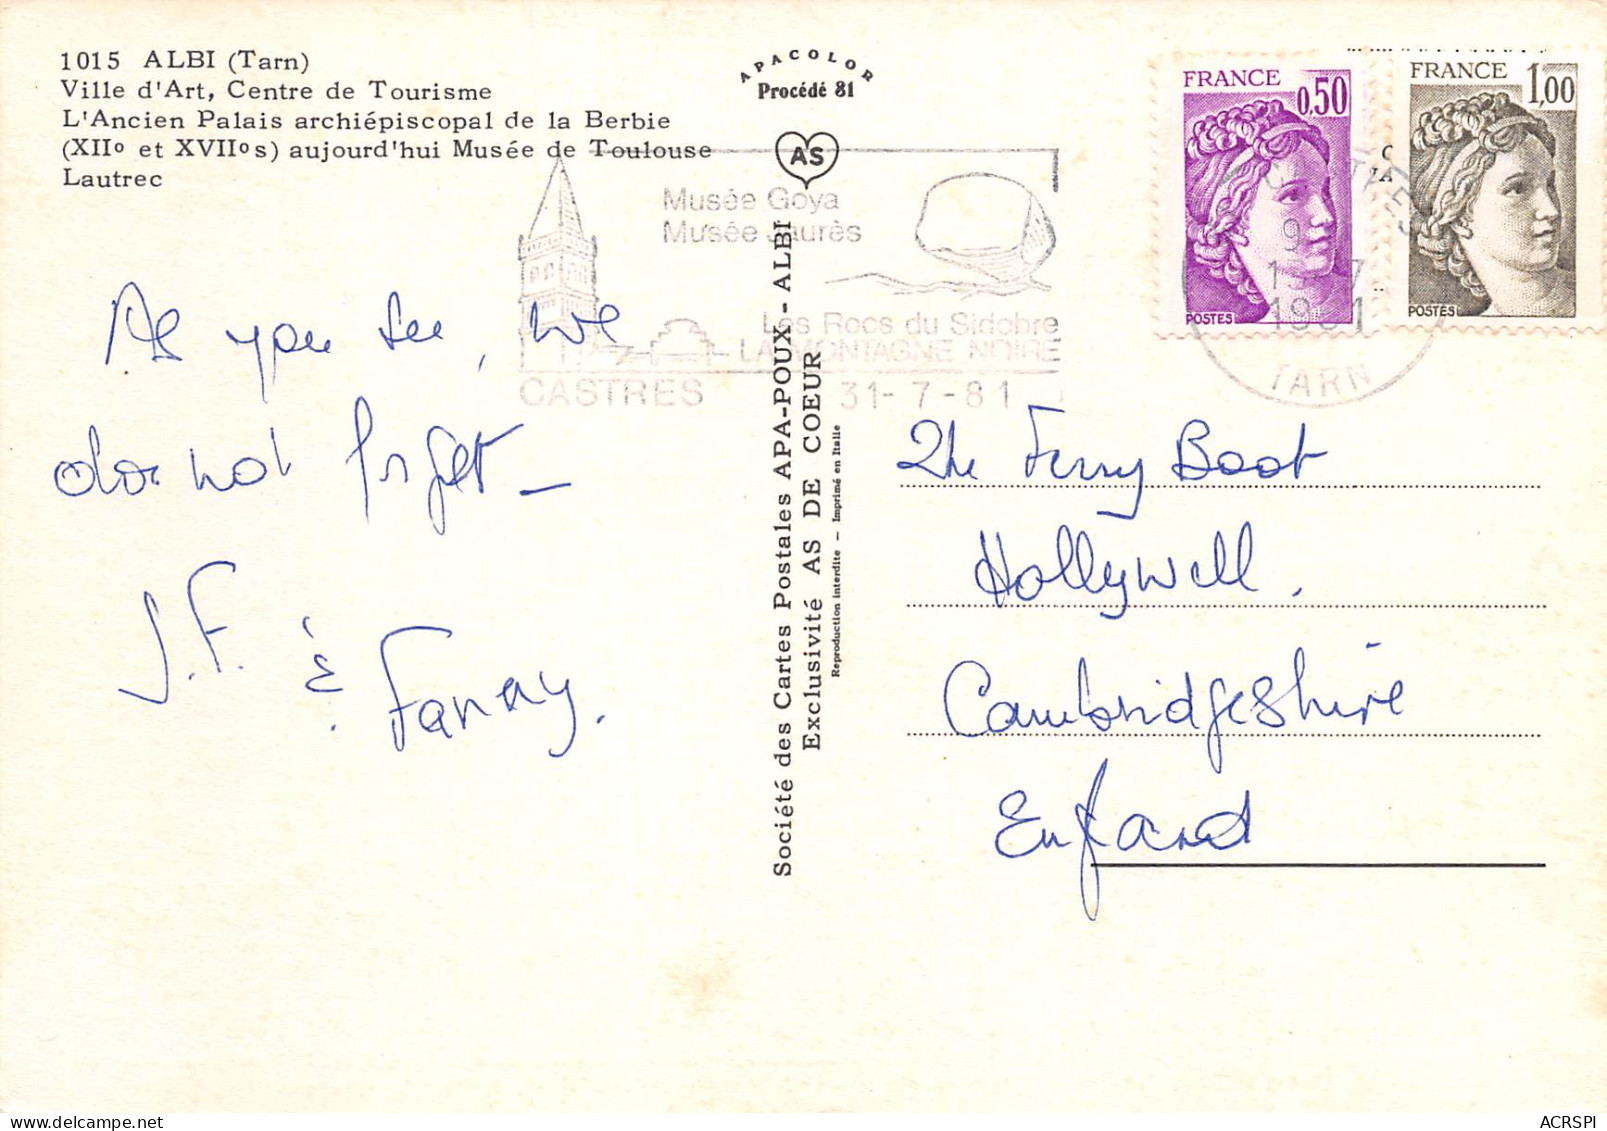 1015 ALBI (Tarn)
Ville d'Art, Centre de Tourisme
L'Ancien Palais archiépiscopal de la Berbie
(XIIo et XVIIos) aujourd'hui Musée de Toulouse
Lautrec
APACOLOR
Procédé 81
AS
Musée Goya
Musée Jaurès
Les Rocs du Sidobre
LA MONTAGNE NOIRE
CASTRES
31-7-81
FRANCE
0,50
POSTES
FRANCE
1,00
POSTES
TARN
As you see, we
do not forget —
J.F. & Fanny.
Société des Cartes Postales APA-POUX - ALBI
Exclusivité AS DE COEUR
Reproduction interdite — Imprimé en Italie
The Ferry Boat
Hollywell.
Cambridgeshire
England
ACRSPI